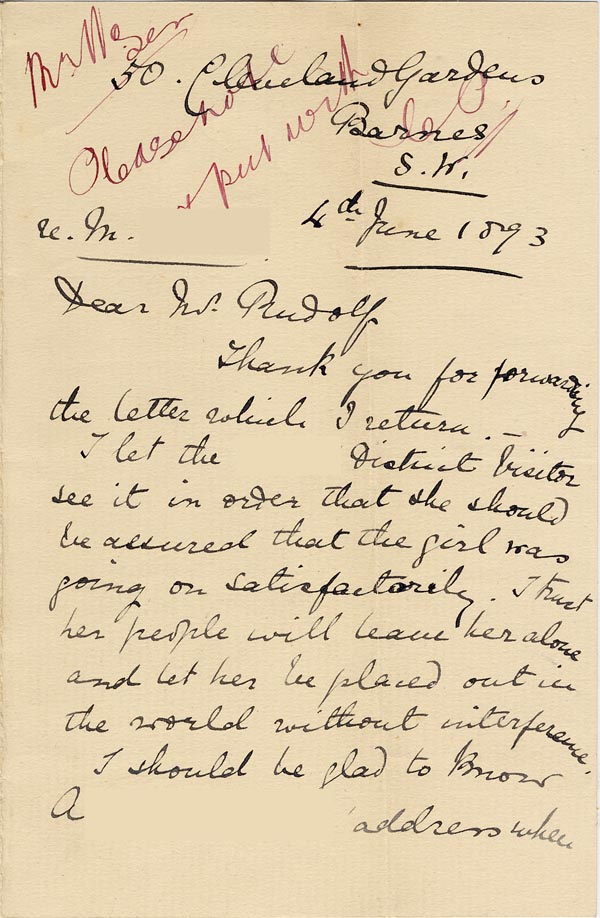 Please note
& put with
50. Cleveland Gardens
Barnes
S.W.
re. M.
4th June 1893
Dear Mr. Rudolf
Thank you for forwarding
the letter which I return. —
I let the District Visitor
see it in order that she should
be assured that the girl was
going on satisfactorily. I trust
her people will leave her alone
and let her be placed out in
the world without interference.
I should be glad to know
A address when